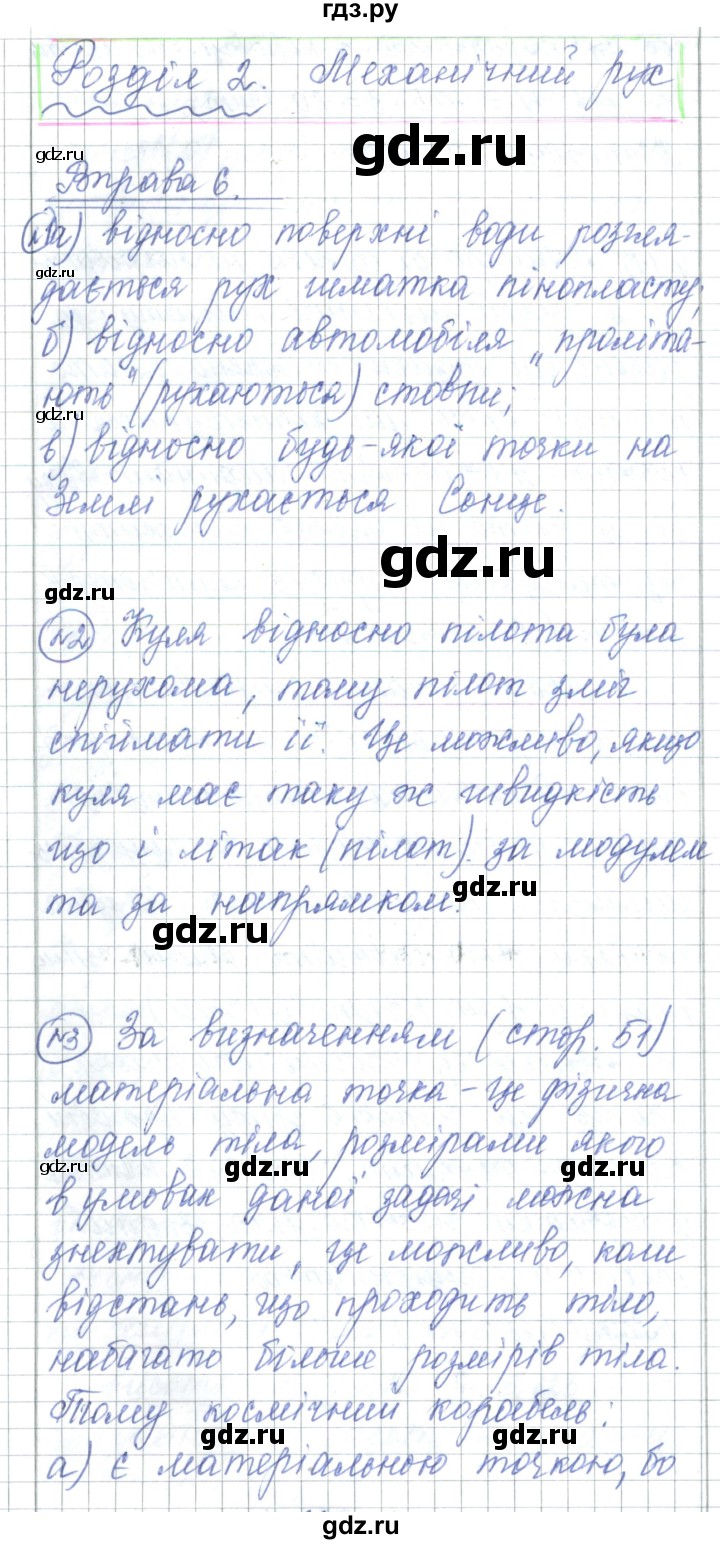 гдз.ру
Розділ 2. Механічний рух
gdz.ru
gdz.ru
Вправа 6.
№1 а) відносно поверхні води розгля-
gdz.ru
дається рух шматка пінопласту;
б) відносно автомобіля „проліта-
ють" (рухаються) стовпи;
gdz.ru
в) відносно будь-якої точки на
Землі рухається Сонце.
gdz.ru
gdz.ru
№2 Куля відносно пілота була
нерухома, тому пілот зміг
спіймати її. Це можливо, якщо
куля має таку ж швидкість
що і літак (пілот) за модулем
gdz.ru
та за напрямком.
gdz.ru
№3 За визначенням (стор. 51)
матеріальна точка - це фізична
модель тіла, розмірами якого
gdz.ru gdz.ru gdz.ru
в умовах даної задачі можна
знехтувати, це можливо, коли
відстань, що проходить тіло,
набагато більше розмірів тіла.
Тому космічний корабель:
gdz.ru gdz.ru
а) є матеріальною точкою, бо
gdz.ru